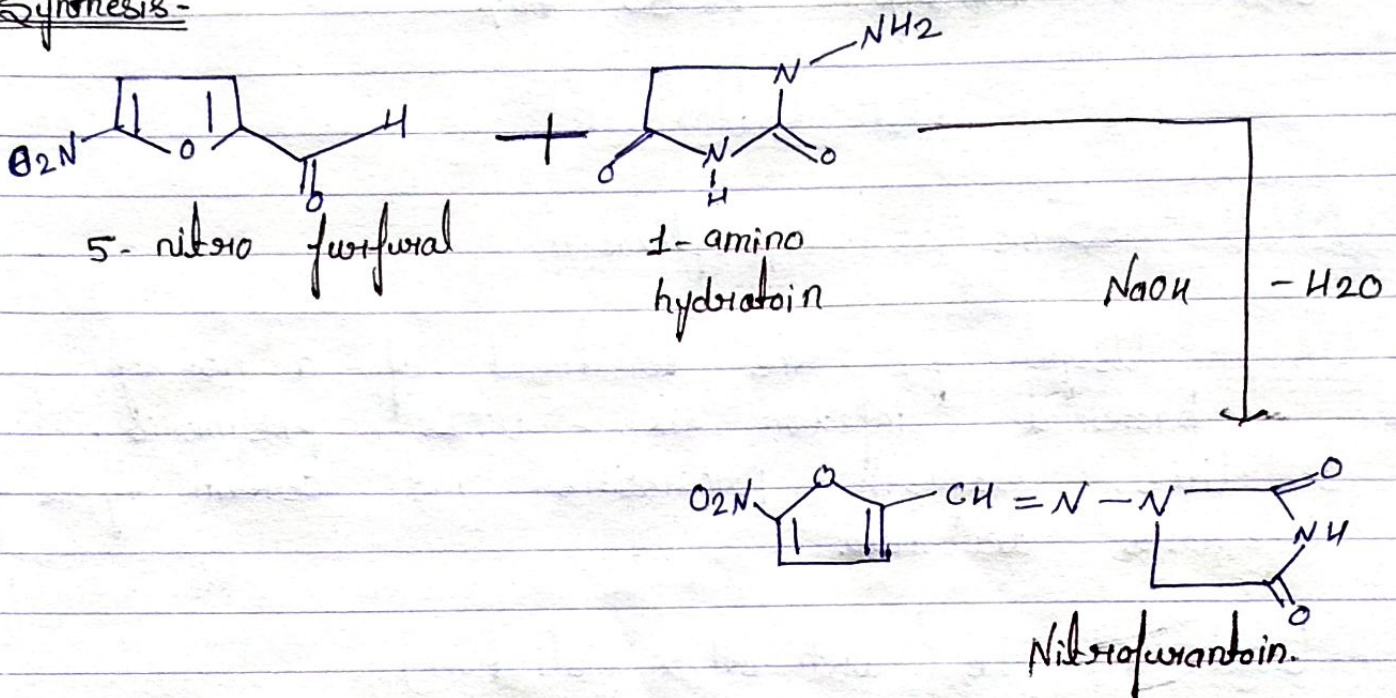 Synthesis-
NH2
N
O2N
O
H
+
N
O
O
O
H
5- nitro furfural
1- amino
hydratoin
NaOH
- H2O
O2N
O
CH = N - N
O
NH
O
Nitrofurantoin.